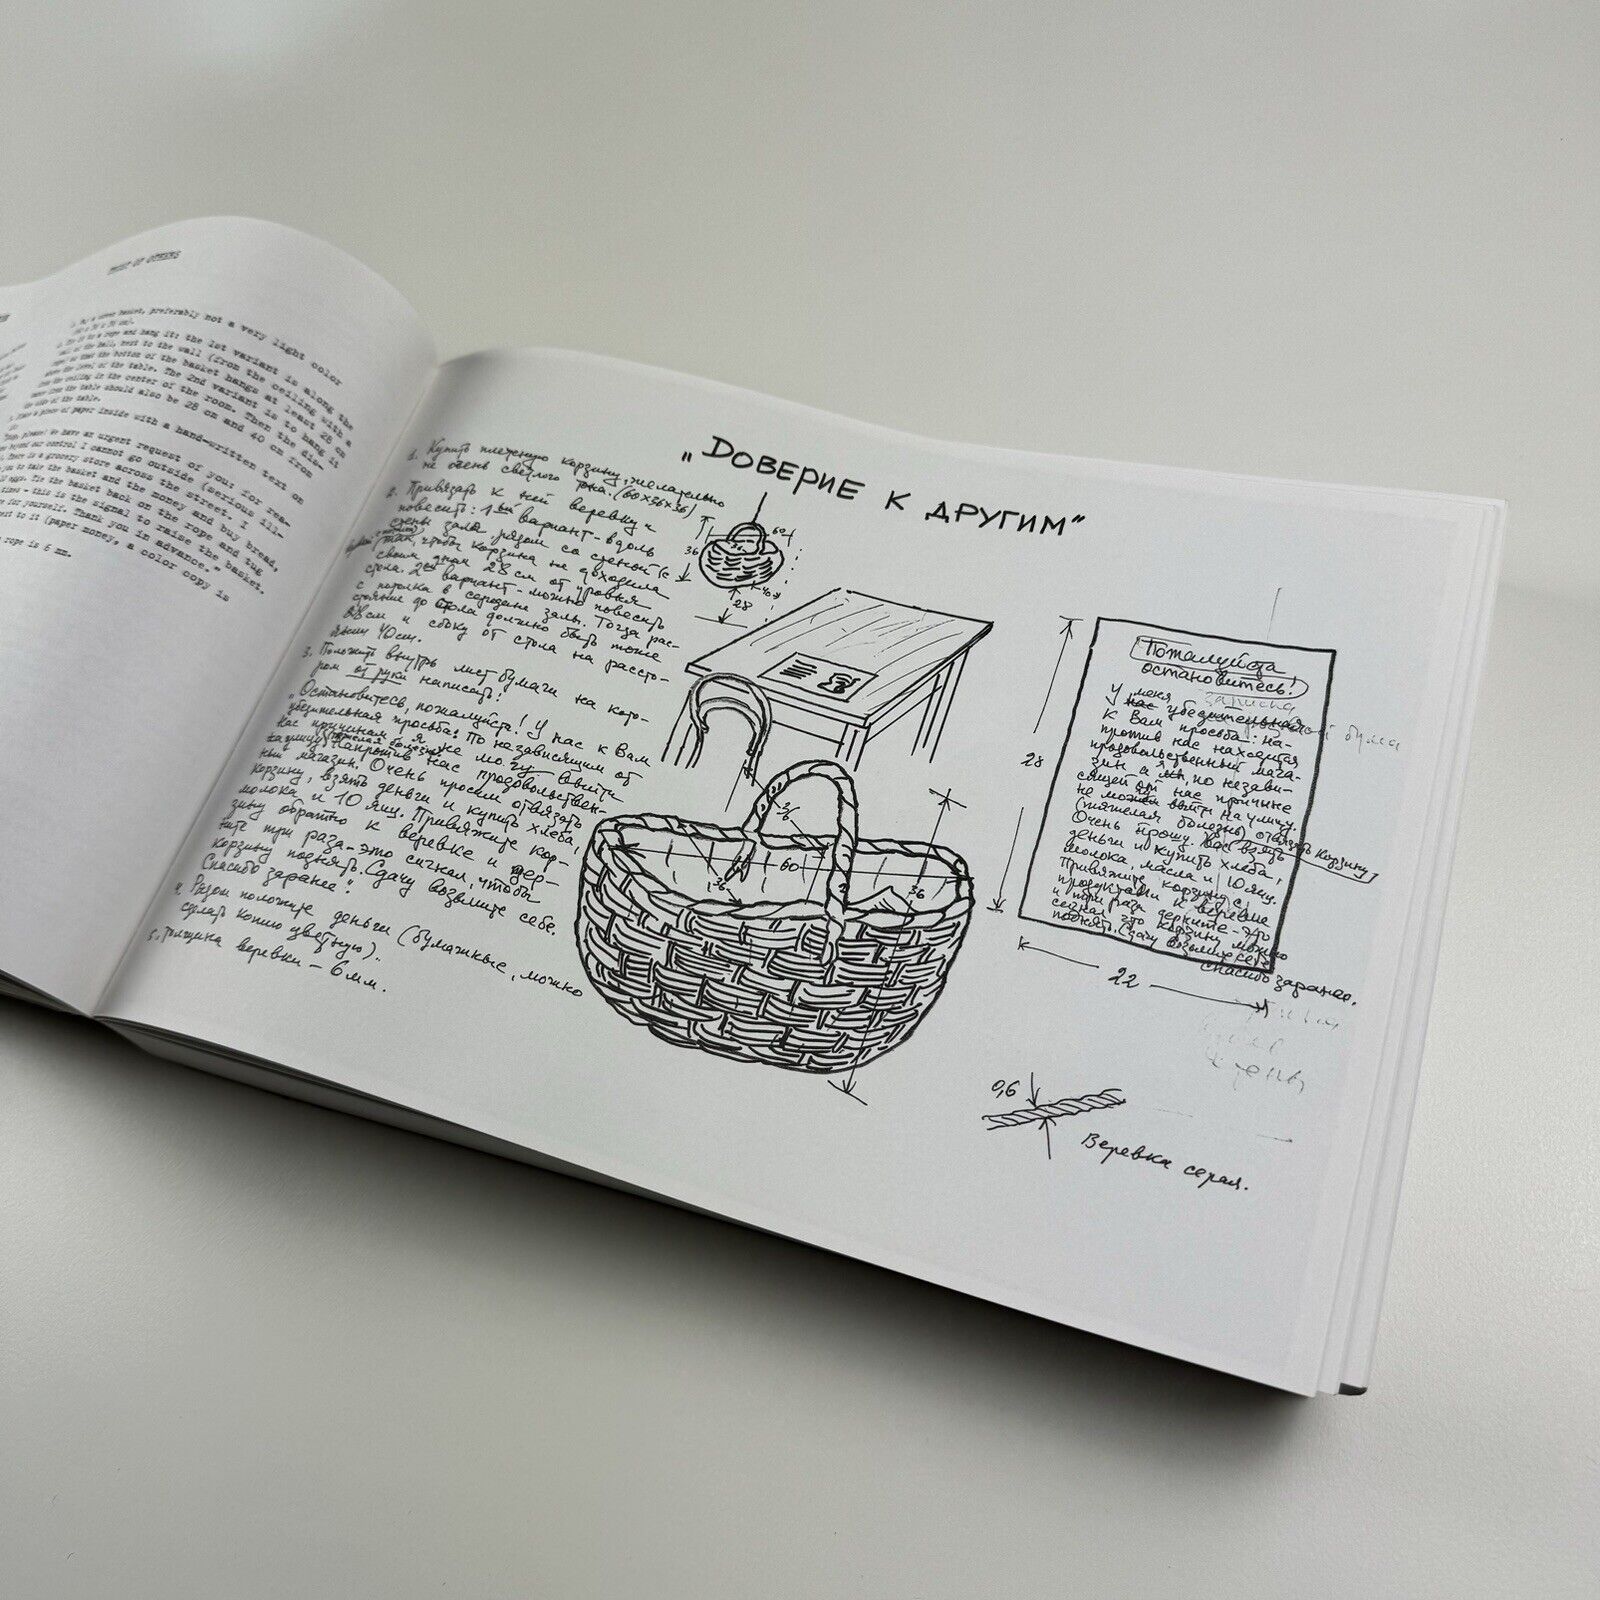 TRUST OF OTHERS
1. Buy a woven basket, preferably not a very light color
(60 x 36 x 36 cm).
to a rope and hang it: the 1st variant is along the
wall of the hall, next to the wall (from the ceiling with a
rope) so that the bottom of the basket hangs at least 28 cm
above the level of the table. The 2nd variant is to hang it
from the ceiling in the center of the room. Then the dis-
tance from the table should also be 28 cm and 40 cm from
the edge of the table.
3. Place a piece of paper inside with a hand-written text on
it:
please! We have an urgent request of you: for rea-
beyond our control I cannot go outside (serious ill-
There is a grocery store across the street. I
you to take the basket and the money and buy bread,
10 eggs. Tie the basket back on the rope and tug
times - this is the signal to raise the basket.
for yourself. Thank you in advance."
next to it (paper money, a color copy is
rope is 6 mm.
„ДОВЕРИЕ К ДРУГИМ"
1. Купить плетеную корзину, желательно
не очень светлого тона. (60×36×36)
2. Привязать к ней веревку и
повесить: 1ый вариант - вдоль
стены зала рядом со стеной (с
так, чтобы корзина не доходила
своим дном 28 см от уровня
стола. 2ой вариант - можно повесить
с потолка в середине залы. Тогда рас-
стояние до стола должно быть тоже
28 см и сбоку от стола на рассто-
янии 40 см.
3. Положить внутрь лист бумаги на кото-
ром от руки написать:
„Остановитесь, пожалуйста! У нас к Вам
убедительная просьба: По независящим от
нас причинам я не могу выйти
на улицу (тяжелая болезнь). Напротив нас продовольствен-
ный магазин. Очень просим отвязать
корзину, взять деньги и купить хлеба,
молока и 10 яиц. Привяжите кор-
зину обратно к веревке и дер-
ните три раза - это сигнал, чтобы
корзину поднять. Сдачу возьмите себе.
Спасибо заранее".
4. Рядом положите деньги (бумажные, можно
сделать копию цветную).
5. Толщина веревки - 6 мм.
60
36
36
40
28
26
60
36
36
28
Пожалуйста
остановитесь!
записка
У меня убедительная
к Вам просьба: на-
против нас находится
продовольственный мага-
зин а я по независи-
сящей от нас причине
не можем выйти на улицу.
(тяжелая болезнь) отвязать корзину,
Очень прошу Вас взять
деньги и купить хлеба,
молока, масла и 10 яиц.
Привяжите корзину с
продуктами к веревке
и три раза дерните - это
сигнал что корзину можно
поднять. Сдачу возьмите себе
Спасибо заранее.
22
0,6
Веревка серая.